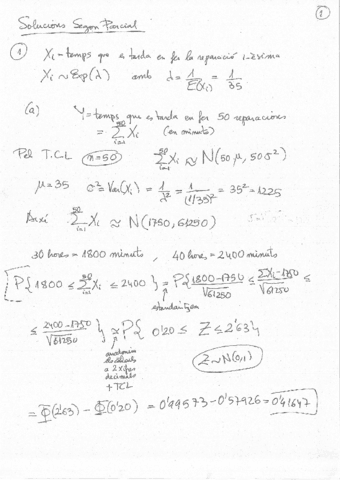 1
Solucions Segon Parcial
1 Xi = temps que es tarda en fer la reparació i-èsima
Xi ~ Exp(λ) amb λ = 1/E(Xi) = 1/35
(a) Y = temps que es tarda en fer 50 reparacions
= Σ_{i=1}^{50} Xi (en minuts)
Pel T.C.L (n=50) Σ_{i=1}^{50} Xi ≈ N(50μ, 50σ²)
μ = 35 σ² = Var(Xi) = 1/λ² = 1/(1/35)² = 35² = 1225
Així Σ_{i=1}^{50} Xi ≈ N(1750, 61250)
30 hores = 1800 minuts, 40 hores = 2400 minuts
P{1800 ≤ Σ_{i=1}^{50} Xi ≤ 2400} = P{(1800-1750)/√61250 ≤ (ΣXi-1750)/√61250 ≤
estandaritzem
≤ (2400-1750)/√61250} ≈ P{0'20 ≤ Z ≤ 2'63}
els càlculs
a 2 xifres
decimals
+ TCL
Z ~ N(0,1)
= Φ(2'63) - Φ(0'20) = 0'99573 - 0'57926 = 0'41647